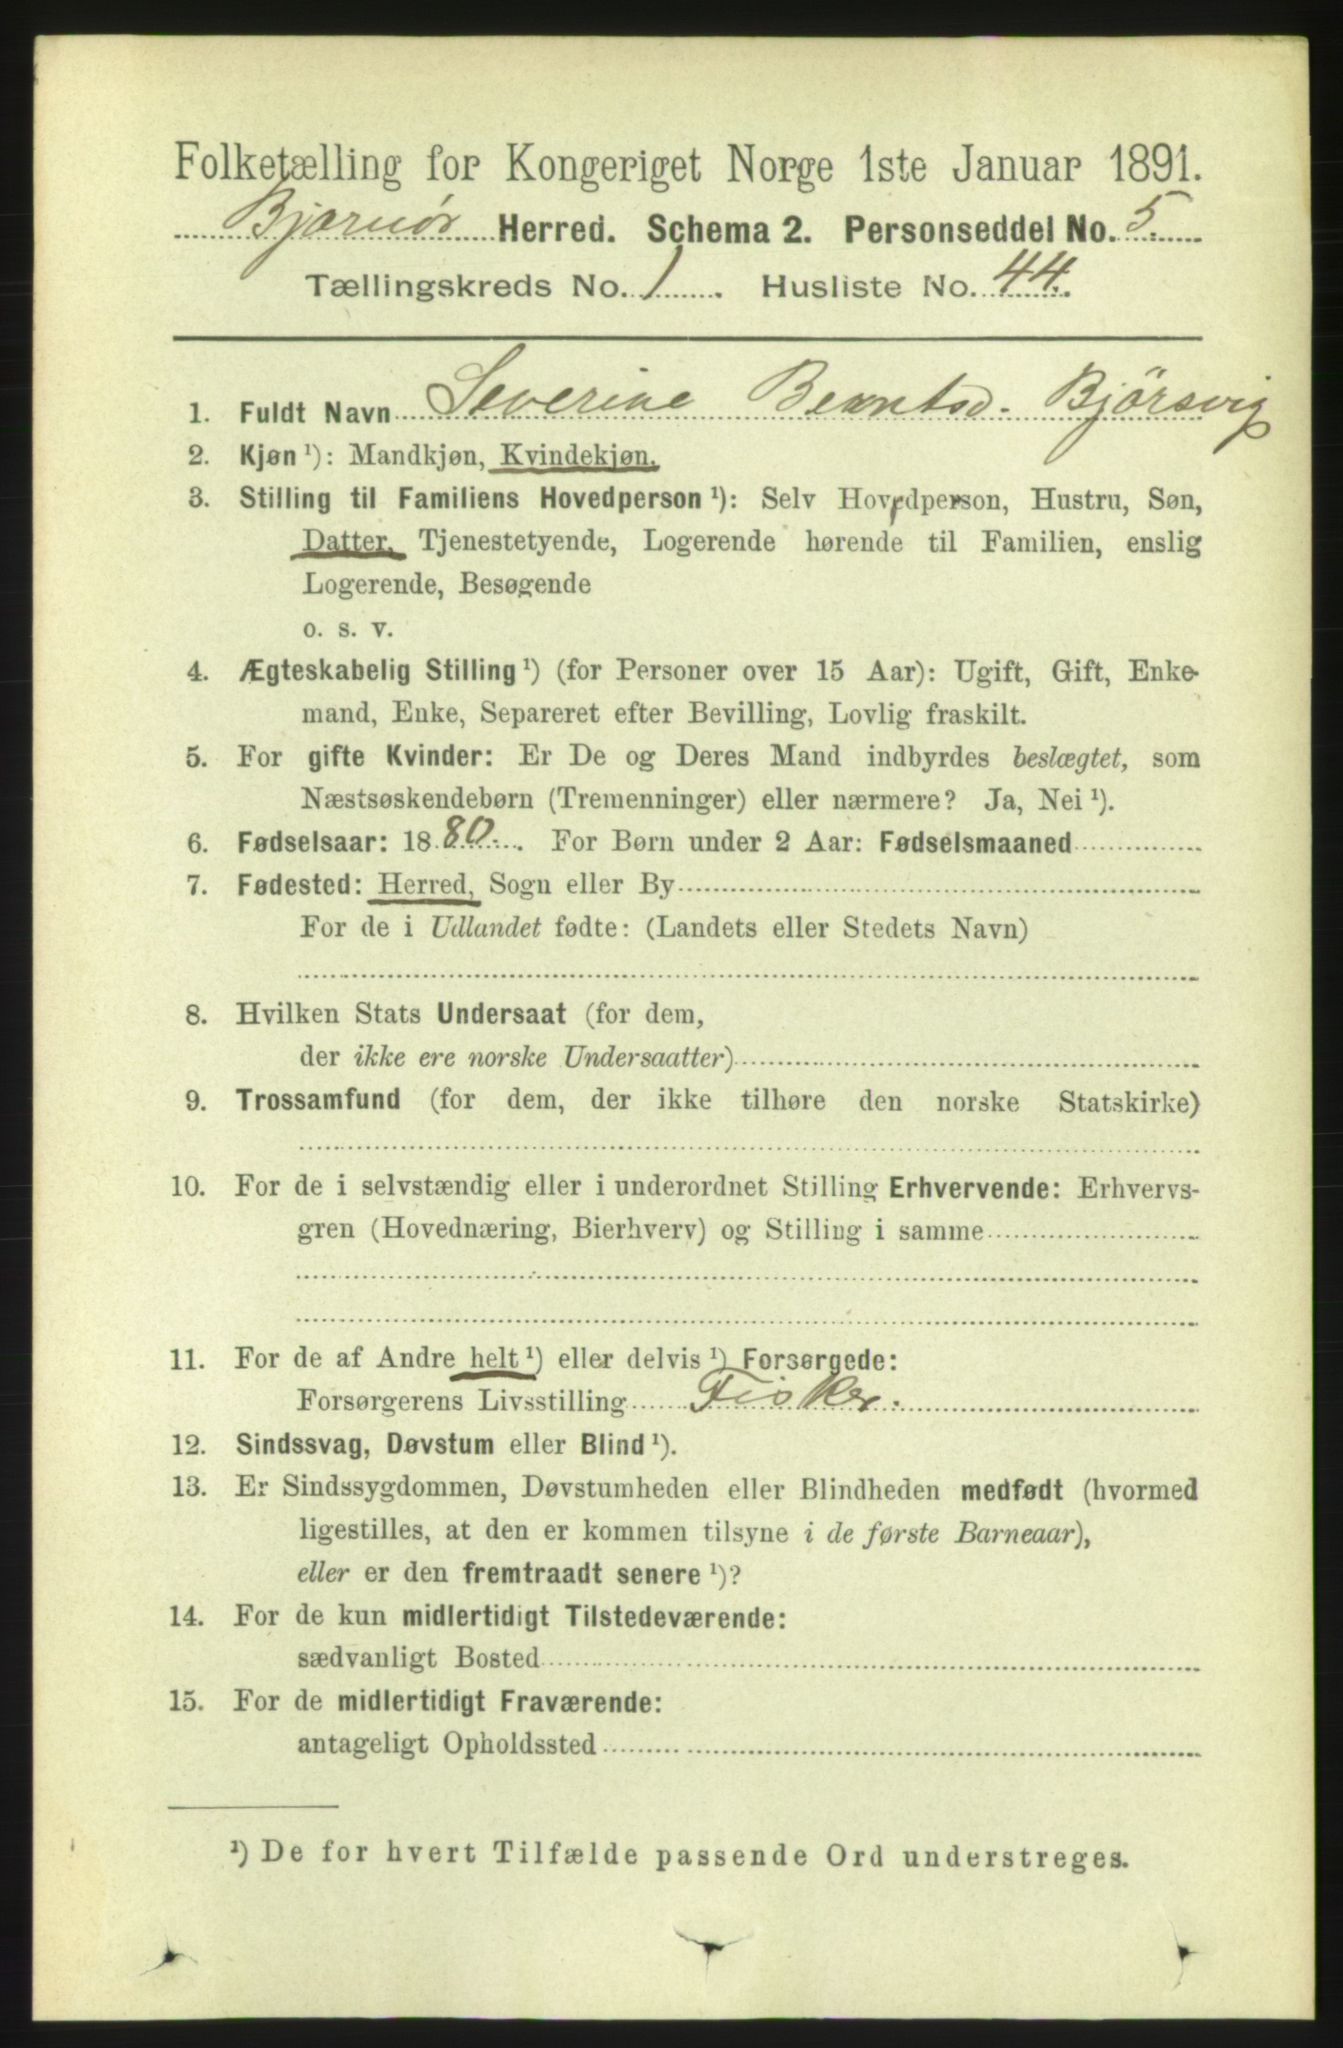 Folketælling for Kongeriget Norge 1ste Januar 1891.
Bjørnør Herred. Schema 2. Personseddel No. 5.
Tællingskreds No. 1. Husliste No. 44.
1. Fuldt Navn Severine Berntsd. Bjørsvig
2. Kjøn ¹): Mandkjøn, Kvindekjøn.
3. Stilling til Familiens Hovedperson ¹): Selv Hovedperson, Hustru, Søn,
Datter, Tjenestetyende, Logerende hørende til Familien, enslig
Logerende, Besøgende
o. s. v.
4. Ægteskabelig Stilling ¹) (for Personer over 15 Aar): Ugift, Gift, Enke-
mand, Enke, Separeret efter Bevilling, Lovlig fraskilt.
5. For gifte Kvinder: Er De og Deres Mand indbyrdes beslægtet, som
Næstsøskendebørn (Tremenninger) eller nærmere? Ja, Nei ¹).
6. Fødselsaar: 1880. For Børn under 2 Aar: Fødselsmaaned
7. Fødested: Herred, Sogn eller By
For de i Udlandet fødte: (Landets eller Stedets Navn)
8. Hvilken Stats Undersaat (for dem,
der ikke ere norske Undersaatter)
9. Trossamfund (for dem, der ikke tilhøre den norske Statskirke)
10. For de i selvstændig eller i underordnet Stilling Erhvervende: Erhvervs-
gren (Hovednæring, Bierhverv) og Stilling i samme
11. For de af Andre helt ¹) eller delvis ¹) Forsørgede:
Forsørgerens Livsstilling Fisker.
12. Sindssvag, Døvstum eller Blind ¹).
13. Er Sindssygdommen, Døvstumheden eller Blindheden medfødt (hvormed
ligestilles, at den er kommen tilsyne i de første Barneaar),
eller er den fremtraadt senere ¹)?
14. For de kun midlertidigt Tilstedeværende:
sædvanligt Bosted
15. For de midlertidigt Fraværende:
antageligt Opholdssted
¹) De for hvert Tilfælde passende Ord understreges.